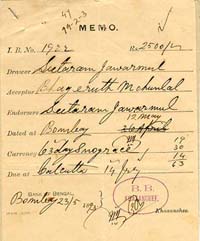 47
79-2-3
MEMO.
I. B. No. 1922 Rs 2500/-
Drawer Seetaram Jawarmul
Acceptor Bhageruth Mohunlal
Endorsers Seetaram Jawarmul
12 May
Dated at Bombay
Currency 63 days 19
30
14
Due at Calcutta 14 July 63
BANK OF BENGAL,
Bombay 23/5
B. B.
Khazanchee.